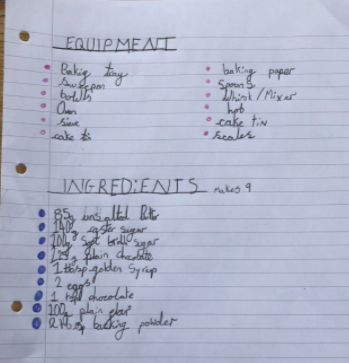 EQUIPMENT
Bakig tray
baking paper
Spoons
bowls
Whisk/Mixer
Oven
hob
sieve
cake tin
cake ti
scales
INGREDiENTS makes 9
85g unsalted
140g caster sugar
100g soft sugar
plain chocolate
1 tbsp golden Syrup
2 eggs
1 chocolate
100g plain
baking powder